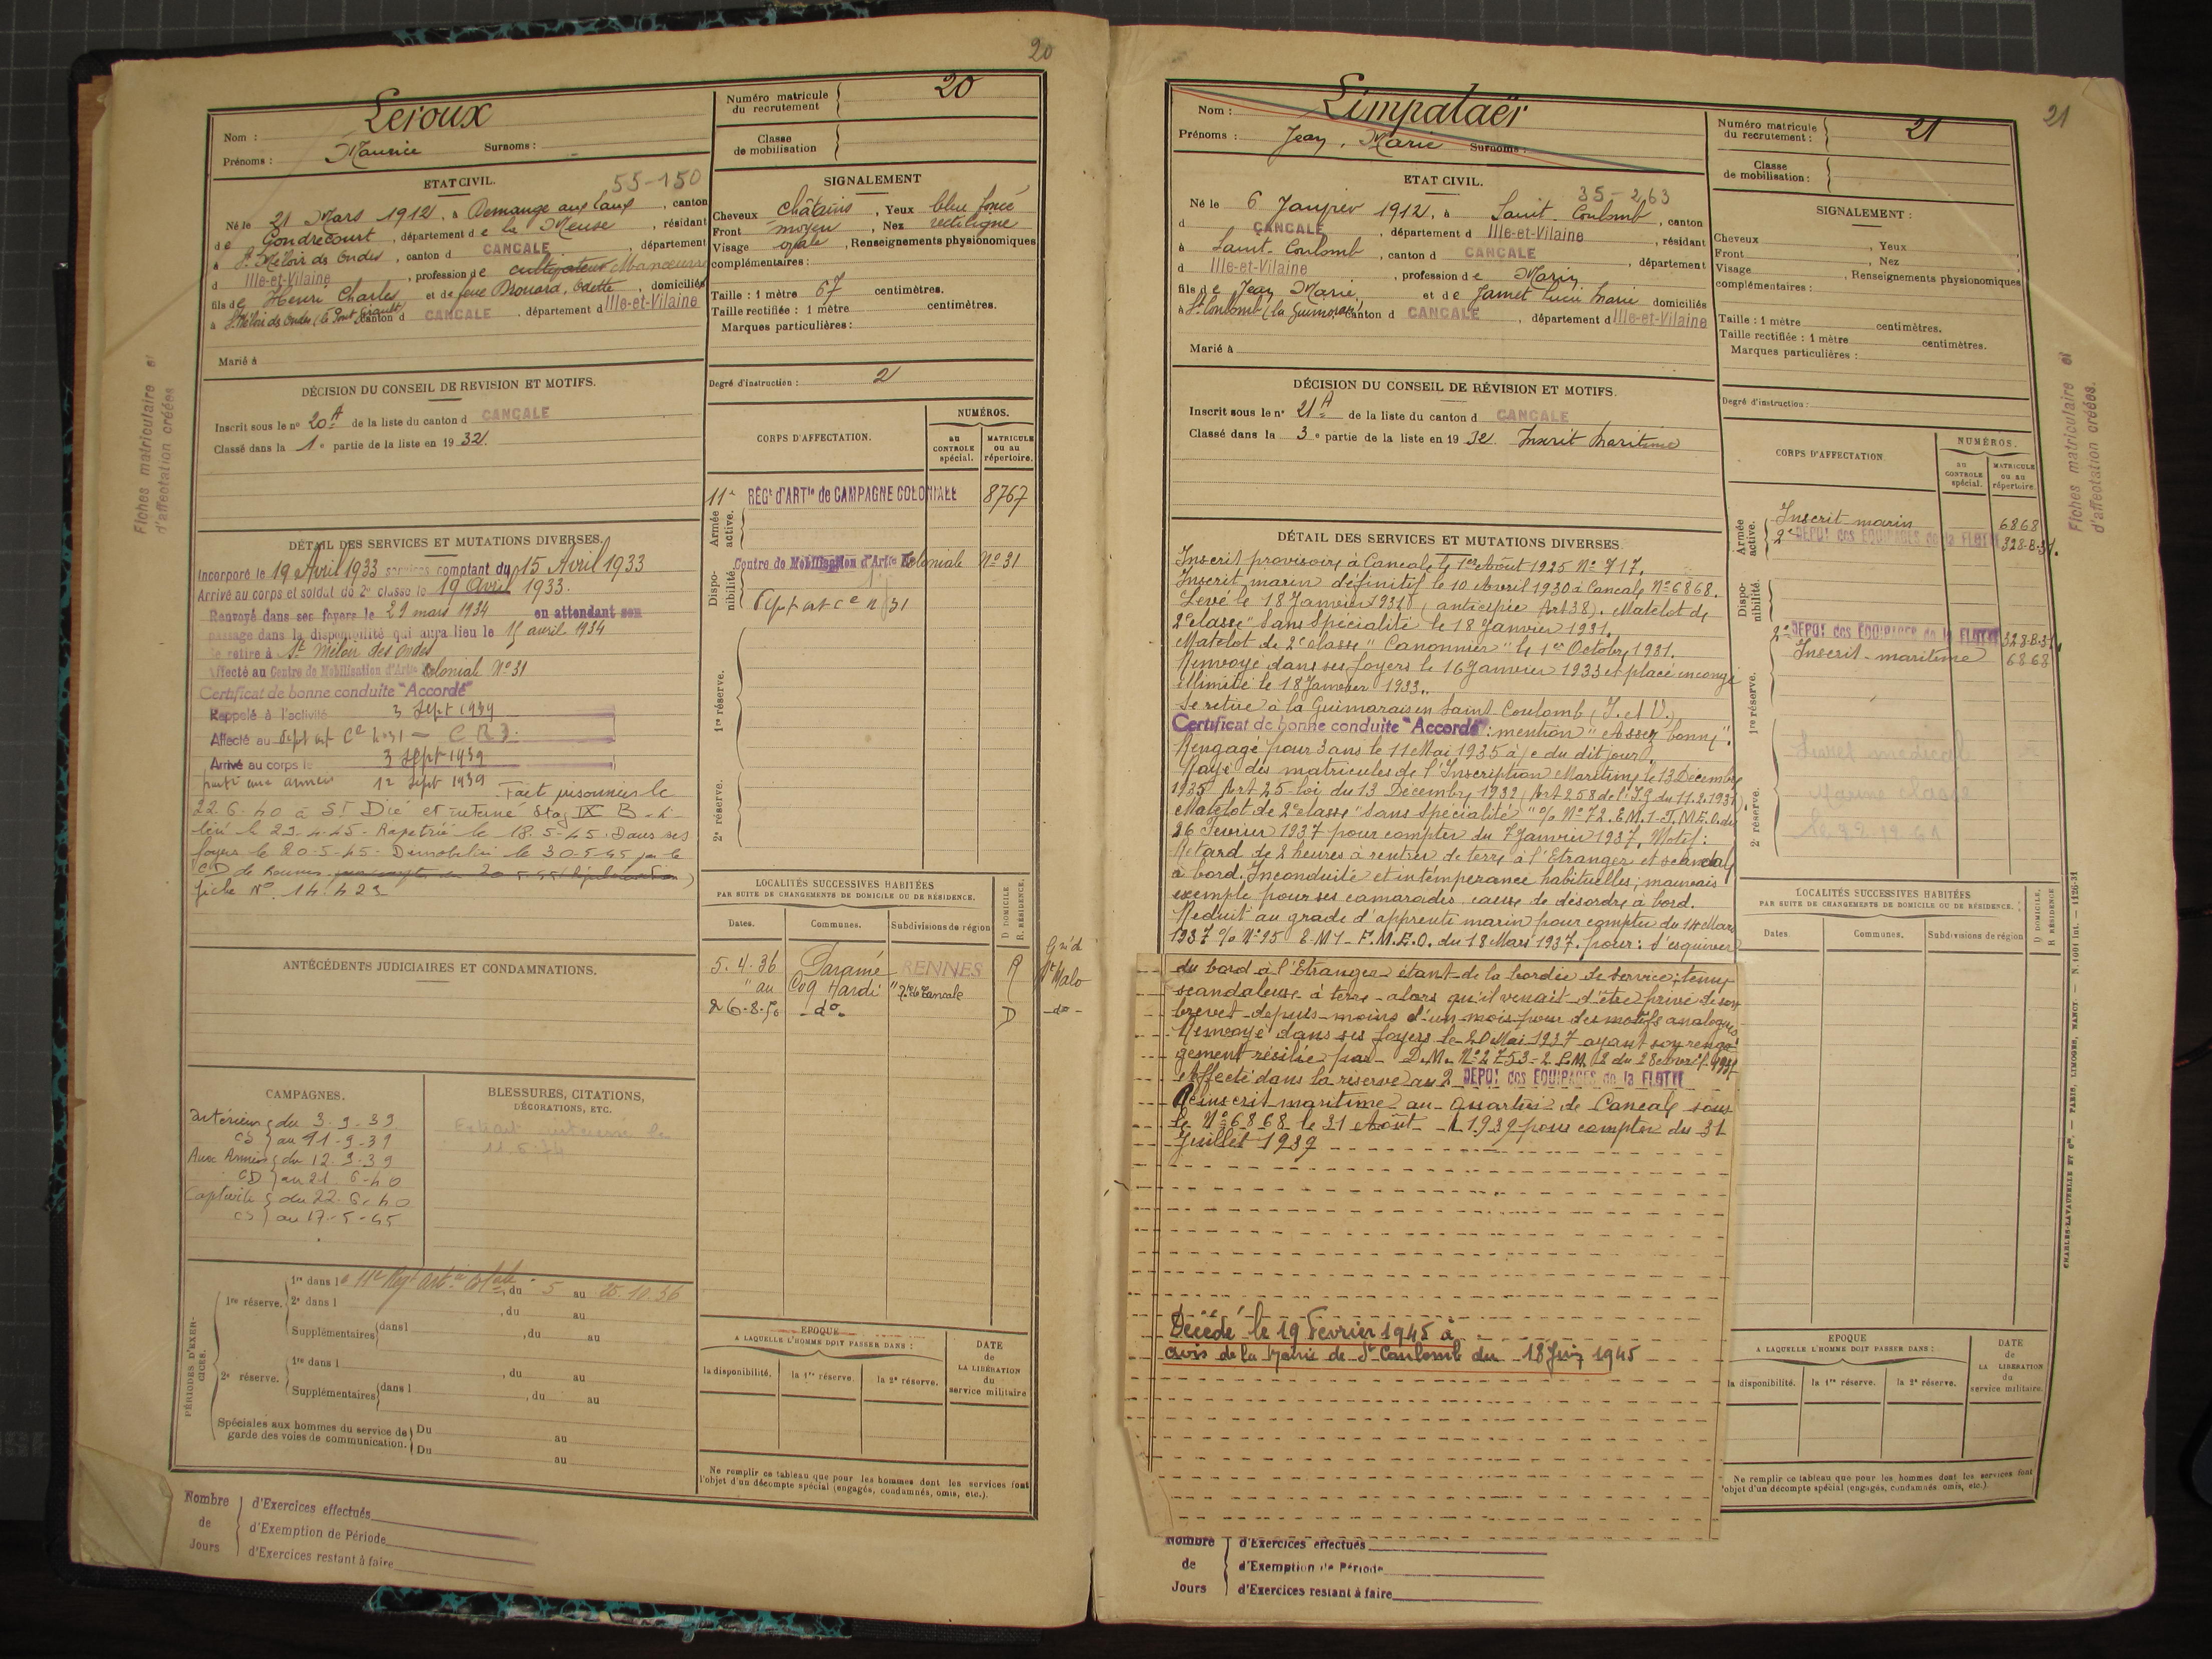 20
Nom : Leroux
Prénoms : Maurice Surnoms :
Numéro matricule du recrutement 20
Classe de mobilisation
ETAT CIVIL.
55-150
Né le 21 Mars 1912, à Demange aux Eaux, canton
de Gondrecourt, département de la Meuse, résidant
à St Méloir des Ondes, canton d CANCALE, département
d Ille-et-Vilaine, profession de cultivateur Manœuvre
fils de Henri Charles et de feue Brouard, Odette, domiciliés
à St Méloir des Ondes (le Pont Girault) canton d CANCALE, département d Ille-et-Vilaine
Marié à
SIGNALEMENT
Cheveux châtains, Yeux bleu foncé
Front moyen, Nez rectiligne
Visage ovale, Renseignements physionomiques
complémentaires :
Taille : 1 mètre 67 centimètres.
Taille rectifiée : 1 mètre centimètres.
Marques particulières :
Degré d'instruction : 2
DÉCISION DU CONSEIL DE REVISION ET MOTIFS.
Inscrit sous le n° 20 A de la liste du canton d CANCALE
Classé dans la 1e partie de la liste en 1932.
CORPS D'AFFECTATION.
NUMÉROS.
au CONTROLE spécial.
MATRICULE ou au répertoire.
Armée active.
11e RÉGt d'ARTie de CAMPAGNE COLONIALE 8767
Disponibilité.
Centre de Mobilisation d'Artie Coloniale No 31
Dépôt art ce n° 31
1re réserve.
2e réserve.
DÉTAIL DES SERVICES ET MUTATIONS DIVERSES.
Incorporé le 19 Avril 1933 services comptant du 15 Avril 1933
Arrivé au corps et soldat de 2e classe le 19 Avril 1933.
Renvoyé dans ses foyers le 29 mars 1934 en attendant son
passage dans la disponibilité qui aura lieu le 15 avril 1934
Se retire à St Méloir des Ondes
Affecté au Centre de Mobilisation d'Artie Coloniale No 31
Certificat de bonne conduite "Accordé"
Rappelé à l'activité 3 Sept 1939
Affecté au Dépôt art Ce n° 31
Arrivé au corps le 3 Sept 1939
parti aux armées 12 Sept 1939. Fait prisonnier le
22.6.40 à St Dié et interné Stag IX B - Li-
béré le 29-4-45 - Rapatrié le 18-5-45. Dans ses
foyers le 20-5-45 - Démobilisé le 30-5-45 par le
CD de Rennes
fiche No 14.423
ANTÉCÉDENTS JUDICIAIRES ET CONDAMNATIONS.
LOCALITÉS SUCCESSIVES HABITÉES
PAR SUITE DE CHANGEMENTS DE DOMICILE OU DE RÉSIDENCE.
Dates. Communes. Subdivisions de région D DOMICILE. R. RÉSIDENCE.
5.4.36 Paramé RENNES R Gie d
" au Coq Hardi " rte de Cancale St Malo
26-8-50 - do - D - do -
CAMPAGNES.
Intérieur du 3-9-39
CS au 11-9-39
Aux Armées du 12-9-39
CD au 21-6-40
Captivité du 22-6-40
CS au 17-5-45
BLESSURES, CITATIONS, DÉCORATIONS, ETC.
PÉRIODES D'EXERCICES.
1re réserve. 1re dans le 11e Régt art ie Colale, du 5 au 25.10.36
2e dans l , du au
Supplémentaires dans l , du au
2e réserve. 1re dans l , du au
Supplémentaires dans l , du au
Spéciales aux hommes du service de garde des voies de communication. Du au
Du au
EPOQUE
A LAQUELLE L'HOMME DOIT PASSER DANS :
la disponibilité. la 1re réserve. la 2e réserve.
DATE de LA LIBÉRATION du service militaire
Ne remplir ce tableau que pour les hommes dont les services font
l'objet d'un décompte spécial (engagés, condamnés, omis, etc.).
Nombre de Jours
d'Exercices effectués
d'Exemption de Période
d'Exercices restant à faire
Fiches matriculaire et d'affectation créées
21
Nom : Limpalaër
Prénoms : Jean, Marie Surnoms :
Numéro matricule du recrutement : 21
Classe de mobilisation :
ETAT CIVIL.
35-263
Né le 6 Janvier 1912, à Saint-Coulomb, canton
d CANCALE, département d Ille-et-Vilaine, résidant
à Saint-Coulomb, canton d CANCALE, département
d Ille-et-Vilaine, profession de Marin
fils de Jean Marie, et de Jamet Lucie Marie domiciliés
à St Coulomb (la Guimorais) canton d CANCALE, département d Ille-et-Vilaine
Marié à
SIGNALEMENT :
Cheveux , Yeux
Front , Nez
Visage , Renseignements physionomiques
complémentaires :
Taille : 1 mètre centimètres.
Taille rectifiée : 1 mètre centimètres.
Marques particulières :
Degré d'instruction :
DÉCISION DU CONSEIL DE RÉVISION ET MOTIFS.
Inscrit sous le n° 21 A de la liste du canton d CANCALE
Classé dans la 3e partie de la liste en 1932 Inscrit Maritime
CORPS D'AFFECTATION.
NUMÉROS.
au CONTROLE spécial.
MATRICULE ou au répertoire.
Armée active.
Inscrit marin 6868
2e DEPOT des EQUIPAGES de la FLOTTE 328-B-31.
Disponibilité.
2e DEPOT des EQUIPAGES de la FLOTTE 328-B-31
Inscrit maritime 6868
1re réserve.
2e réserve.
Livret médical
Marine classe
DÉTAIL DES SERVICES ET MUTATIONS DIVERSES.
Inscrit provisoire à Cancale le 1er Août 1925 No 717.
Inscrit marin définitif le 10 Avril 1930 à Cancale No 6868.
Levé le 18 Janvier 1931 (anticipée Art 38). Matelot de
2e classe "Sans Spécialité" le 18 Janvier 1931.
Matelot de 2e classe "Canonnier" le 1er Octobre 1931.
Renvoyé dans ses foyers le 16 Janvier 1933 et placé en congé
illimité le 18 Janvier 1933.
Se retire à la Guimorais en Saint Coulomb (I. et V.)
Certificat de bonne conduite "Accordé" : mention "Assez bonne".
Rengagé pour 3 ans le 11 Mai 1935 à/c du dit jour
Rayé des matricules de l'Inscription Maritime le 13 Décembre
1935 Art 25 Loi du 13 Décembre 1932 (Art 258 de l'I.G du 11.2.1931)
Matelot de 2e classe "Sans Spécialité" % No 72. E.M.1-F.M.E.O. du
26 Février 1937 pour compter du 7 Janvier 1937. Motif :
Retard de 2 heures à rentrer de terre à l'Etranger et scandale
à bord. Inconduite et intempérance habituelles ; mauvais
exemple pour ses camarades, cause de désordre à bord.
Réduit au grade d'apprenti marin pour compter du 14 Mars
1937 % No 95 E-M1-F.M.E.O. du 18 Mars 1937. pour : S'esquiver
du bord à l'Etranger étant de la bordée de service ; tenue
scandaleuse à terre - alors qu'il venait d'être privé de son
brevet depuis moins d'un mois pour des motifs analogues
Renvoyé dans ses foyers le 20 Mai 1937 ayant son renga-
gement résilié par D.M. No 2753-2 P.M. 2 du 28 avril 1937
Affecté dans la réserve au 2 DEPOT des EQUIPAGES de la FLOTTE
Réinscrit maritime au Quartier de Cancale sous
le No 6868 le 21 Août 1939 pour compter du 31
Juillet 1939
Décédé le 19 Février 1945 à
avis de la Mairie de St Coulomb du 18 Juin 1945
LOCALITÉS SUCCESSIVES HABITÉES
PAR SUITE DE CHANGEMENTS DE DOMICILE OU DE RÉSIDENCE.
Dates. Communes. Subdivisions de région D DOMICILE. R RÉSIDENCE
EPOQUE
A LAQUELLE L'HOMME DOIT PASSER DANS :
la disponibilité. la 1re réserve. la 2e réserve.
DATE de LA LIBÉRATION du service militaire.
Ne remplir ce tableau que pour les hommes dont les services font
l'objet d'un décompte spécial (engagés, condamnés omis, etc.).
Nombre de Jours
d'Exercices effectués
d'Exemption de Période
d'Exercices restant à faire
Fiches matriculaire et d'affectation créées.
CHARLES-LAVAUZELLE ET Cie. — PARIS, LIMOGES, NANCY. — N. 1601 int. — 1126-31